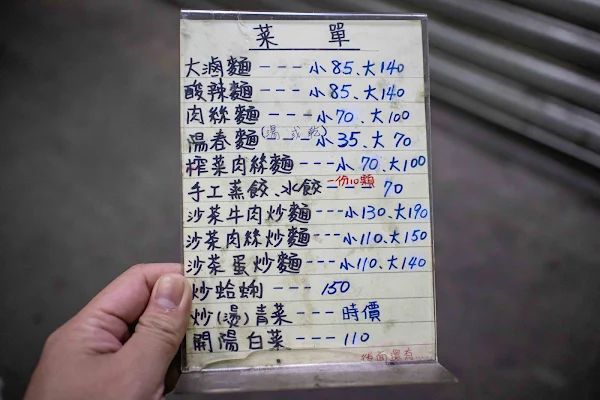 菜單
大滷麵---小85、大140
酸辣麵---小85、大140
肉絲麵---小70、大100
陽春麵(湯或乾)---小35、大70
榨菜肉絲麵---小70、大100
手工蒸餃、水餃---70
一份10顆
沙茶牛肉炒麵---小130、大190
沙茶肉絲炒麵---小110、大150
沙茶蛋炒麵---小110、大140
炒蛤蜊---150
炒(燙)青菜---時價
開陽白菜---110
後面還有...